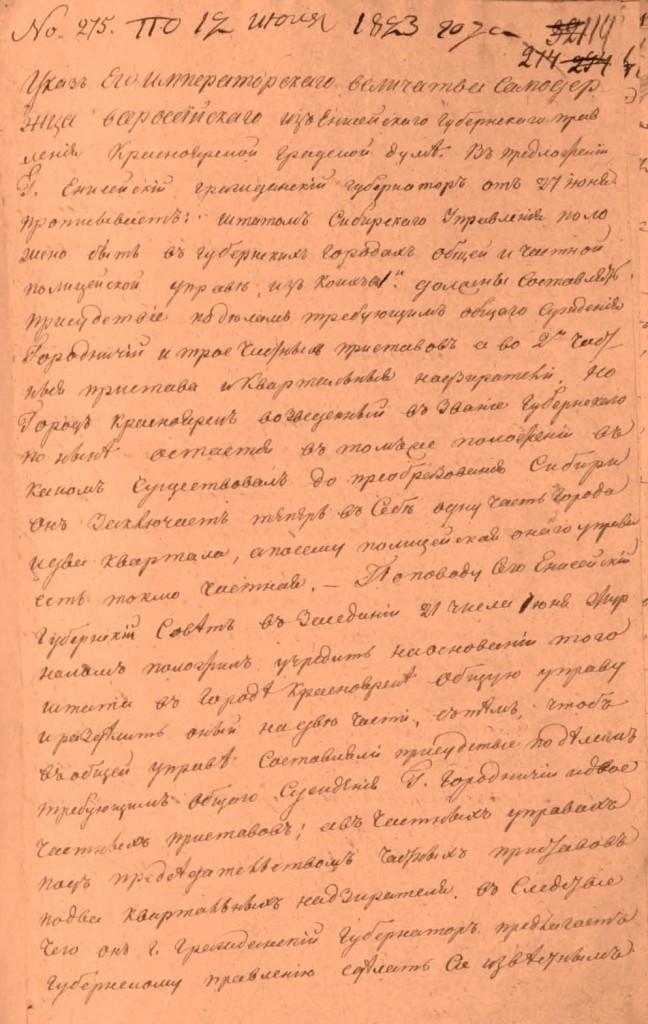 No. 275. ПО 12 июля 1823 года 114
274
Указъ Его императорскаго величатва Самодер
жца всеросейскаго изъ Енисейскаго Губернскаго прав
ления Красноярской градской думѣ. Въ предложении
Г. Енисейский гражданский губернаторъ отъ 27 июня
прописываетъ: штатомъ Сибирскаго Управления поло
жено быть въ губернскихъ городахъ общей и частной
полицейской управѣ, изъ коихъ въ 1й должны составлять
присудствие по деламъ требующимъ общаго суждения
Городничий и трое частныхъ приставовъ а во 2й част
ныя пристава и квартальныя надзиратели, но
Городъ Красноярскъ возведенный въ звание Губернскаго
по нынѣ остается въ томъ же положении въ
каномъ существовалъ до преобразования Сибири
онъ заключаетъ теперь въ себѣ одну часть города
и два квартала, а посему полицейская онаго управа
есть токмо частная. — По поводу сего Енисейский
Губернский Совѣтъ въ заседании 21 числа июня жур
наломъ положилъ учредить на основании того
штата въ городѣ Красноярскѣ общую управу
и раздѣлить оный на двѣ части, съ тѣмъ, чтобъ
въ общей управѣ составляли присудствие по дѣламъ
требующимъ общаго суждения Г. Городничий и двое
частныхъ приставовъ; а въ частныхъ управахъ
подъ предсѣдательствомъ частныхъ приставовъ
по два квартальныхъ надзирателя. въ следствие
чего онъ г. гражданский губернаторъ предлагаетъ
губернскому правлению сдѣлать се извѣстнымъ